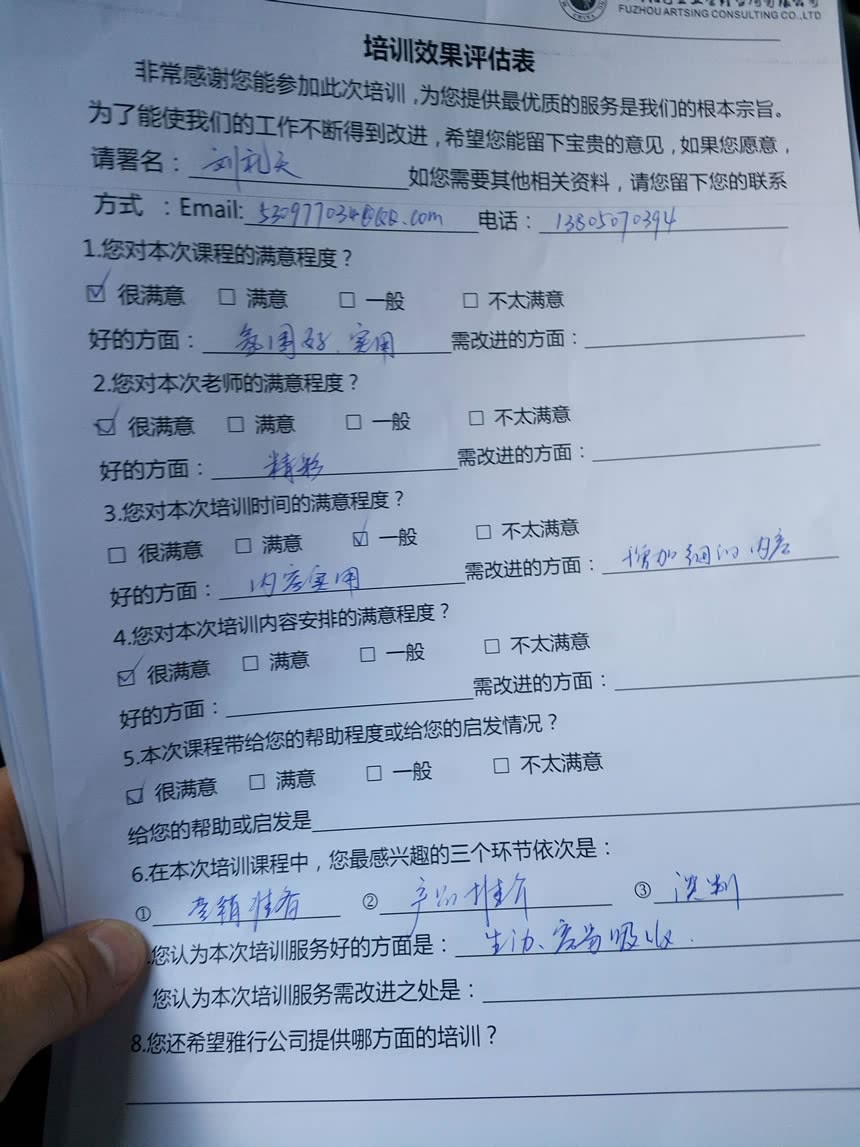 FUZHOU ARTSING CONSULTING CO.,LTD
培训效果评估表
非常感谢您能参加此次培训,为您提供最优质的服务是我们的根本宗旨。
为了能使我们的工作不断得到改进,希望您能留下宝贵的意见,如果您愿意,
请署名: 刘礼天 如您需要其他相关资料,请您留下您的联系
方式 :Email: 530977034@QQ.com 电话: 13805070394
1.您对本次课程的满意程度?
☑ 很满意 □ 满意 □ 一般 □ 不太满意
好的方面: 氛围好、实用 需改进的方面:
2.您对本次老师的满意程度?
☑ 很满意 □ 满意 □ 一般 □ 不太满意
好的方面: 精彩 需改进的方面:
3.您对本次培训时间的满意程度?
□ 很满意 □ 满意 ☑ 一般 □ 不太满意
好的方面: 内容实用 需改进的方面: 增加细的内容
4.您对本次培训内容安排的满意程度?
☑ 很满意 □ 满意 □ 一般 □ 不太满意
好的方面: 需改进的方面:
5.本次课程带给您的帮助程度或给您的启发情况?
☑ 很满意 □ 满意 □ 一般 □ 不太满意
给您的帮助或启发是
6.在本次培训课程中,您最感兴趣的三个环节依次是:
① 营销准备 ② 产品推介 ③ 谈判
.您认为本次培训服务好的方面是: 生动、容易吸收.
您认为本次培训服务需改进之处是:
8.您还希望雅行公司提供哪方面的培训?